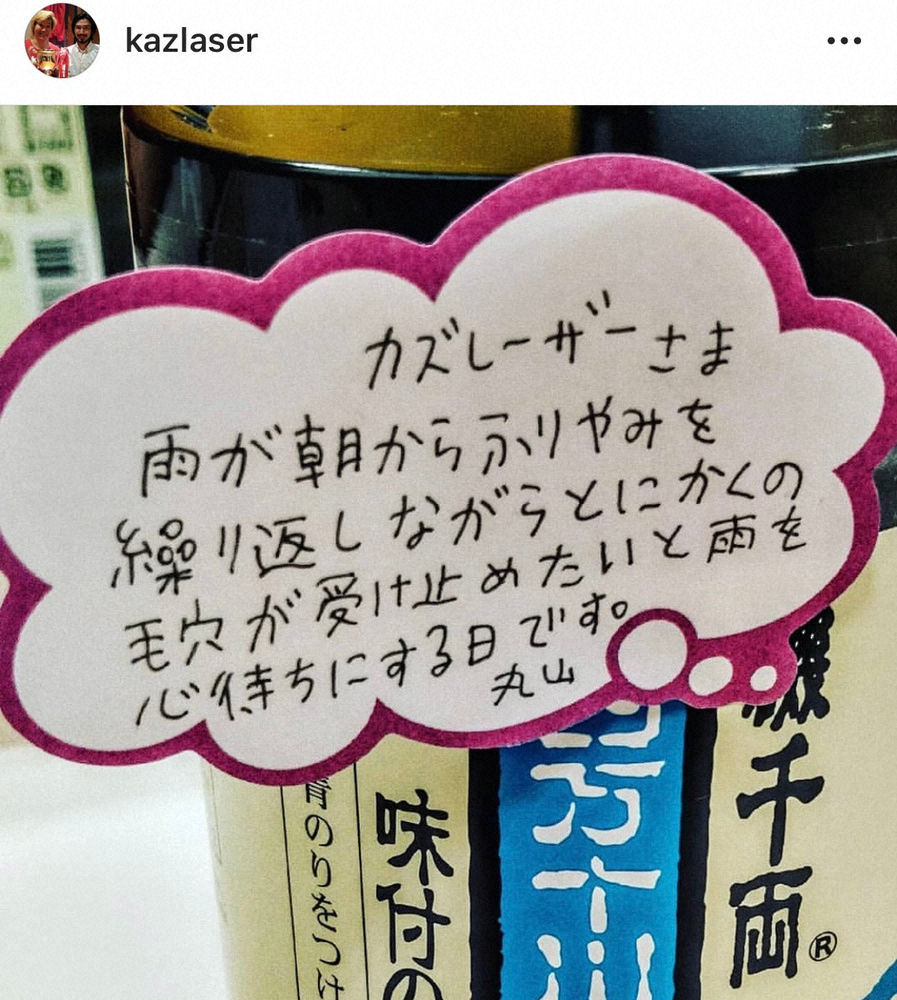 kazlaser
カズレーザーさま
雨が朝からふりやみを
繰り返しながらとにかくの
毛穴が受け止めたいと雨を
心待ちにする日です。
丸山
磯千両®
味付の
青のりをつけ